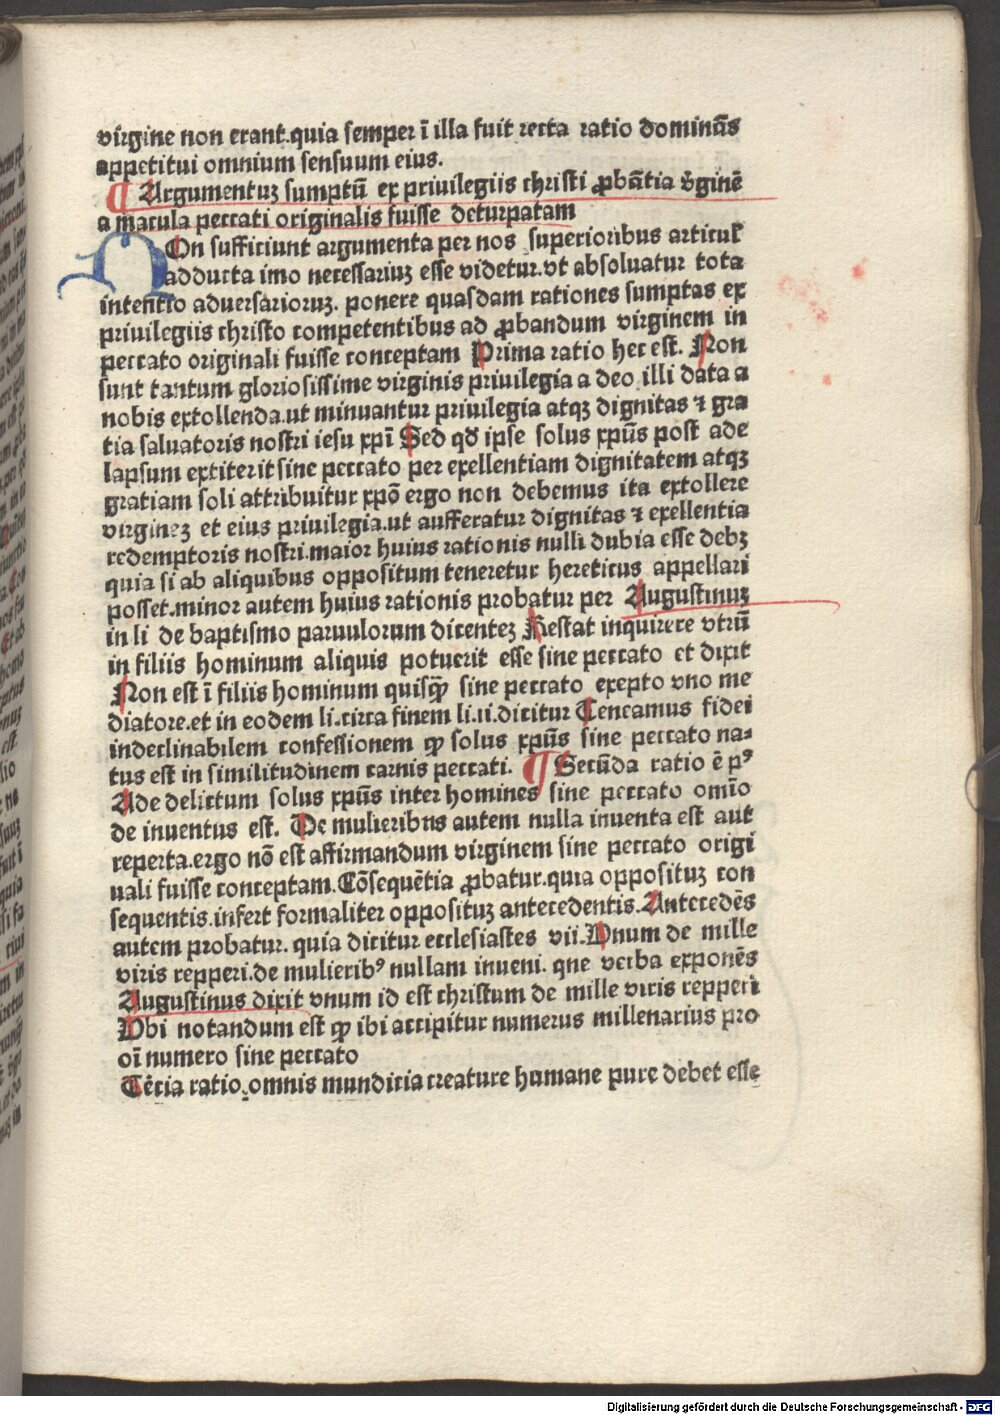 virgine non erant.quia semper ī illa fuit recta ratio dominās
appetitui omnium sensuum eius.
¶ Argumentuꝫ sumptū ex priuilegiis christi ꝓbātia v̄ginē
a macula peccati originalis fuisse deturpatam
NOn sufficiunt argumenta per nos superioribus articul
adducta imo necessariuꝫ esse videtur.vt absoluatur tota
intentio aduersarioruꝫ. ponere quasdam rationes sumptas ex
priuilegiis christo competentibus ad ꝓbandum virginem in
peccato originali fuisse conceptam Prima ratio hec est. Non
sunt tantum gloriosissime virginis priuilegia a deo illi data a
nobis extollenda.ut minuantur priuilegia atqꝫ dignitas ⁊ gra
tia saluatoris nostri iesu xpī Sed qd̄ ipse solus xpūs post ade
lapsum extiterit sine peccato per exellentiam dignitatem atqꝫ
gratiam soli attribuitur xpō ergo non debemus ita extollere
virgineꝫ et eius priuilegia.ut aufferatur dignitas ⁊ exellentia
redemptoris nostri.maior huius rationis nulli dubia esse debꝫ
quia si ab aliquibus oppositum teneretur hereticus appellari
posset.minor autem huius rationis probatur per Augustinuꝫ
in li de baptismo paruulorum dicenteꝫ Restat inquirere vtrū
in filiis hominum aliquis potuerit esse sine peccato et dixit
Non est ī filiis hominum quisqꝫ̄ sine peccato exepto vno me
diatore.et in eodem li.circa finem li.ii.dicitur Teneamus fidei
indeclinabilem confessionem ꝙ solus xpūs sine peccato na⸗
tus est in similitudinem carnis peccati. ¶ Secūda ratio ē pꝰ
Ade delictum solus xpūs inter homines sine peccato omīo
de inuentus est. De mulieribus autem nulla inuenta est aut
reperta.ergo nō est affirmandum virginem sine peccato origi
uali fuisse conceptam.Cōsequētia ꝓbatur.quia opposituꝫ con
sequentis.infert formaliter opposituꝫ antecedentis.Antecedēs
autem probatur. quia dicitur ecclesiastes vii.Vnum de mille
viris repperi.de mulieribꝰ nullam inueni. qne verba exponēs
Augustinus dixit vnum id est christum de mille viris repperi
Vbi notandum est ꝙ ibi accipitur numerus millenarius pro
oī numero sine peccato
Tēcia ratio.omnis mundicia creature humane pure debet esse
Digitalisierung gefördert durch die Deutsche Forschungsgemeinschaft - DFG